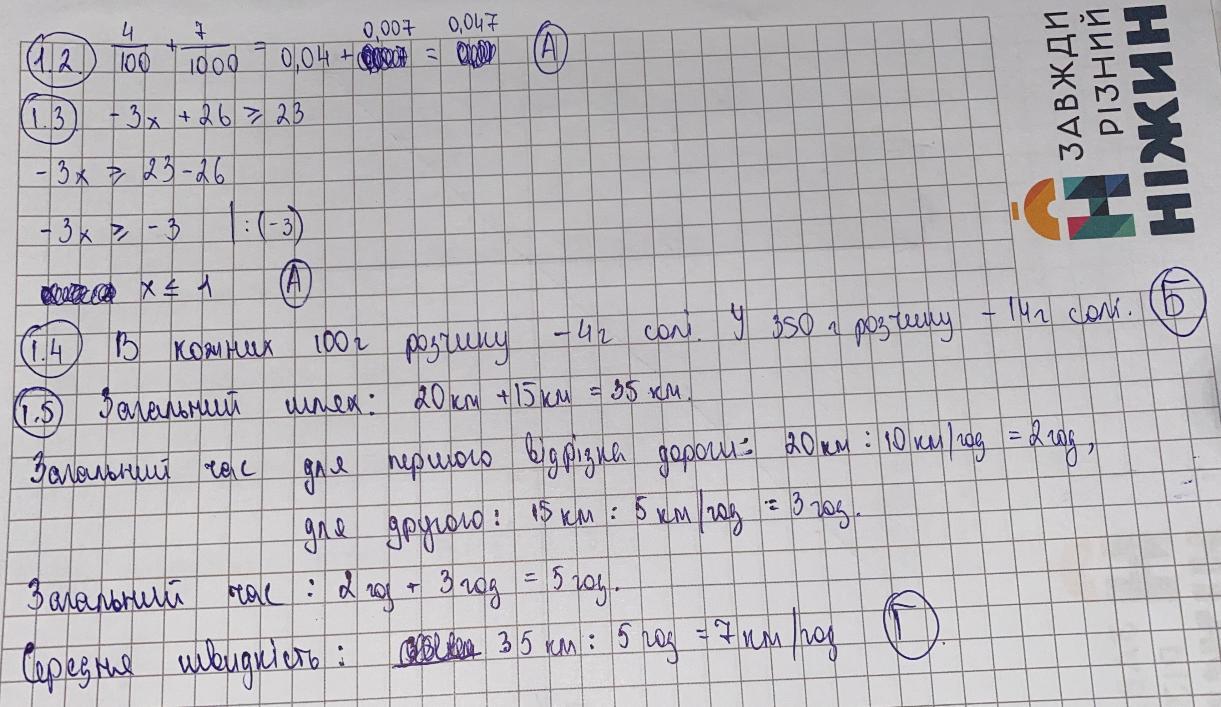 1.2. 4/100 + 7/1000 = 0,04 + 0,007 = 0,047 А
1.3 -3x + 26 ≥ 23
-3x ≥ 23-26
-3x ≥ -3 | : (-3)
x ≤ 1 А
1.4 В кожних 100г розчину - 4г солі. У 350 г розчину - 14г солі. Б
1.5 Загальний шлях: 20км + 15км = 35 км.
Загальний час для першого відрізка дороги: 20км : 10 км/год = 2 год,
для другого: 15 км : 5 км/год = 3 год.
Загальний час : 2 год + 3 год = 5 год.
Середня швидкість : 35 км : 5 год = 7 км/год Г.
ЗАВЖДИ
РІЗНИЙ
НІЖИН